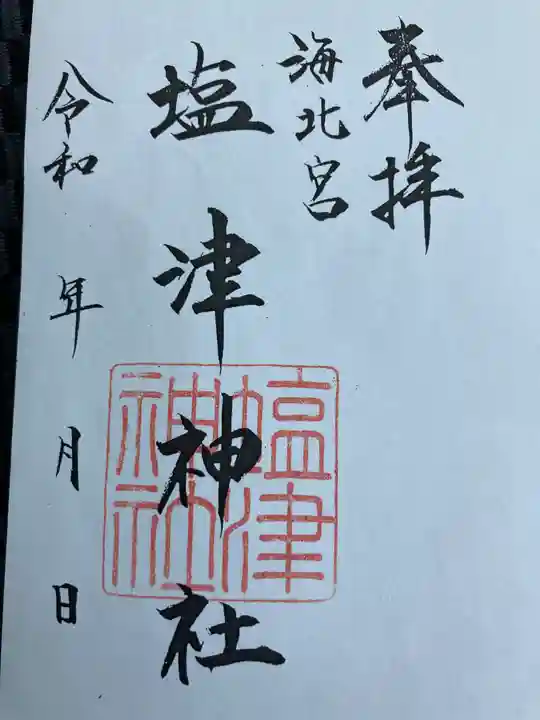 奉拝
海北宮
塩津神社
塩津
神社
令和 年 月 日